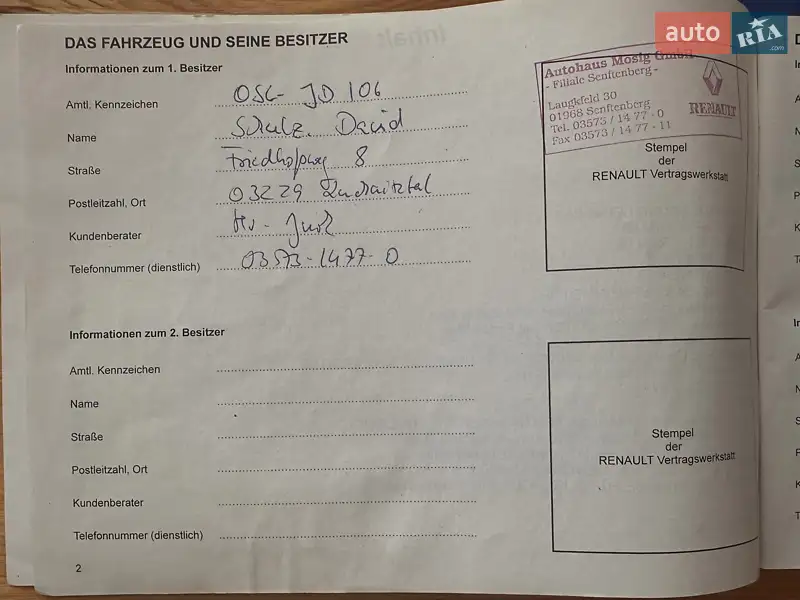 auto RIA .com
DAS FAHRZEUG UND SEINE BESITZER
Informationen zum 1. Besitzer
Amtl. Kennzeichen OSL-JD 106
Name Schulz, David
Straße Friedhofsweg 8
Postleitzahl, Ort 03229
Kundenberater Hr.
Telefonnummer (dienstlich) 03573-1477-0
Autohaus Mosig GmbH
- Filiale Senftenberg -
Laugkfeld 30
01968 Senftenberg
Tel. 03573 / 14 77 - 0
Fax 03573 / 14 77 - 11
RENAULT
Stempel
der
RENAULT Vertragswerkstatt
Informationen zum 2. Besitzer
Amtl. Kennzeichen
Name
Straße
Postleitzahl, Ort
Kundenberater
Telefonnummer (dienstlich)
Stempel
der
RENAULT Vertragswerkstatt
2